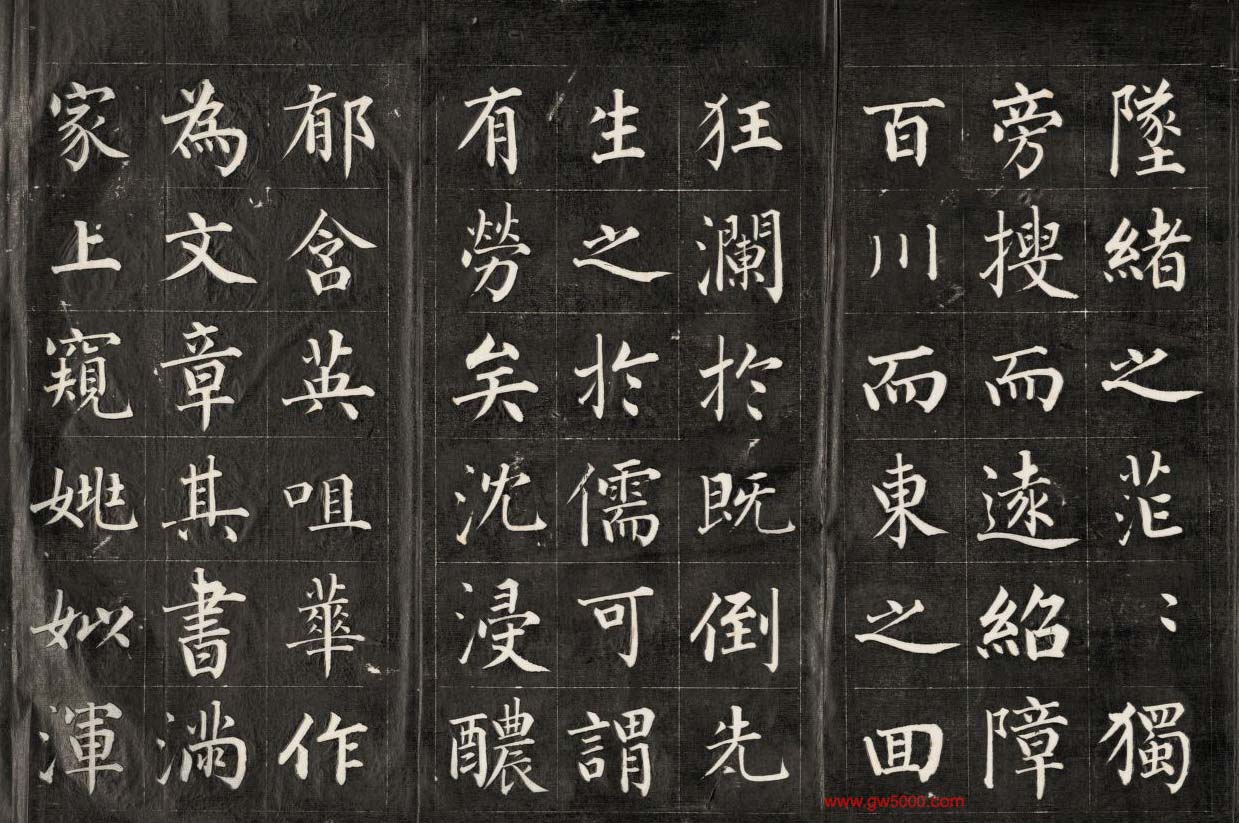 墜緒之茫〻獨
旁搜而遠紹障
百川而東之回
狂瀾於既倒先
生之於儒可謂
有勞矣沈浸醲
郁含英咀華作
為文章其書滿
家上窺姚姒渾
www.gw5000.com